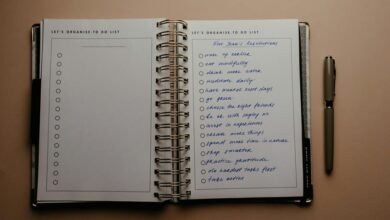 LET'S ORGANISE-TO DO LIST
LET'S ORGANISE-TO DO LIST
New Year's Resolutions
wake up earlier
eat mindfully
drink more water
meditate daily
have makeup free days
go green
choose the right friends
be ok with saying no
invest in experiences
create more things
spend more time in nature
shop smarter
practice gratitude
do hardest tasks first
take notes